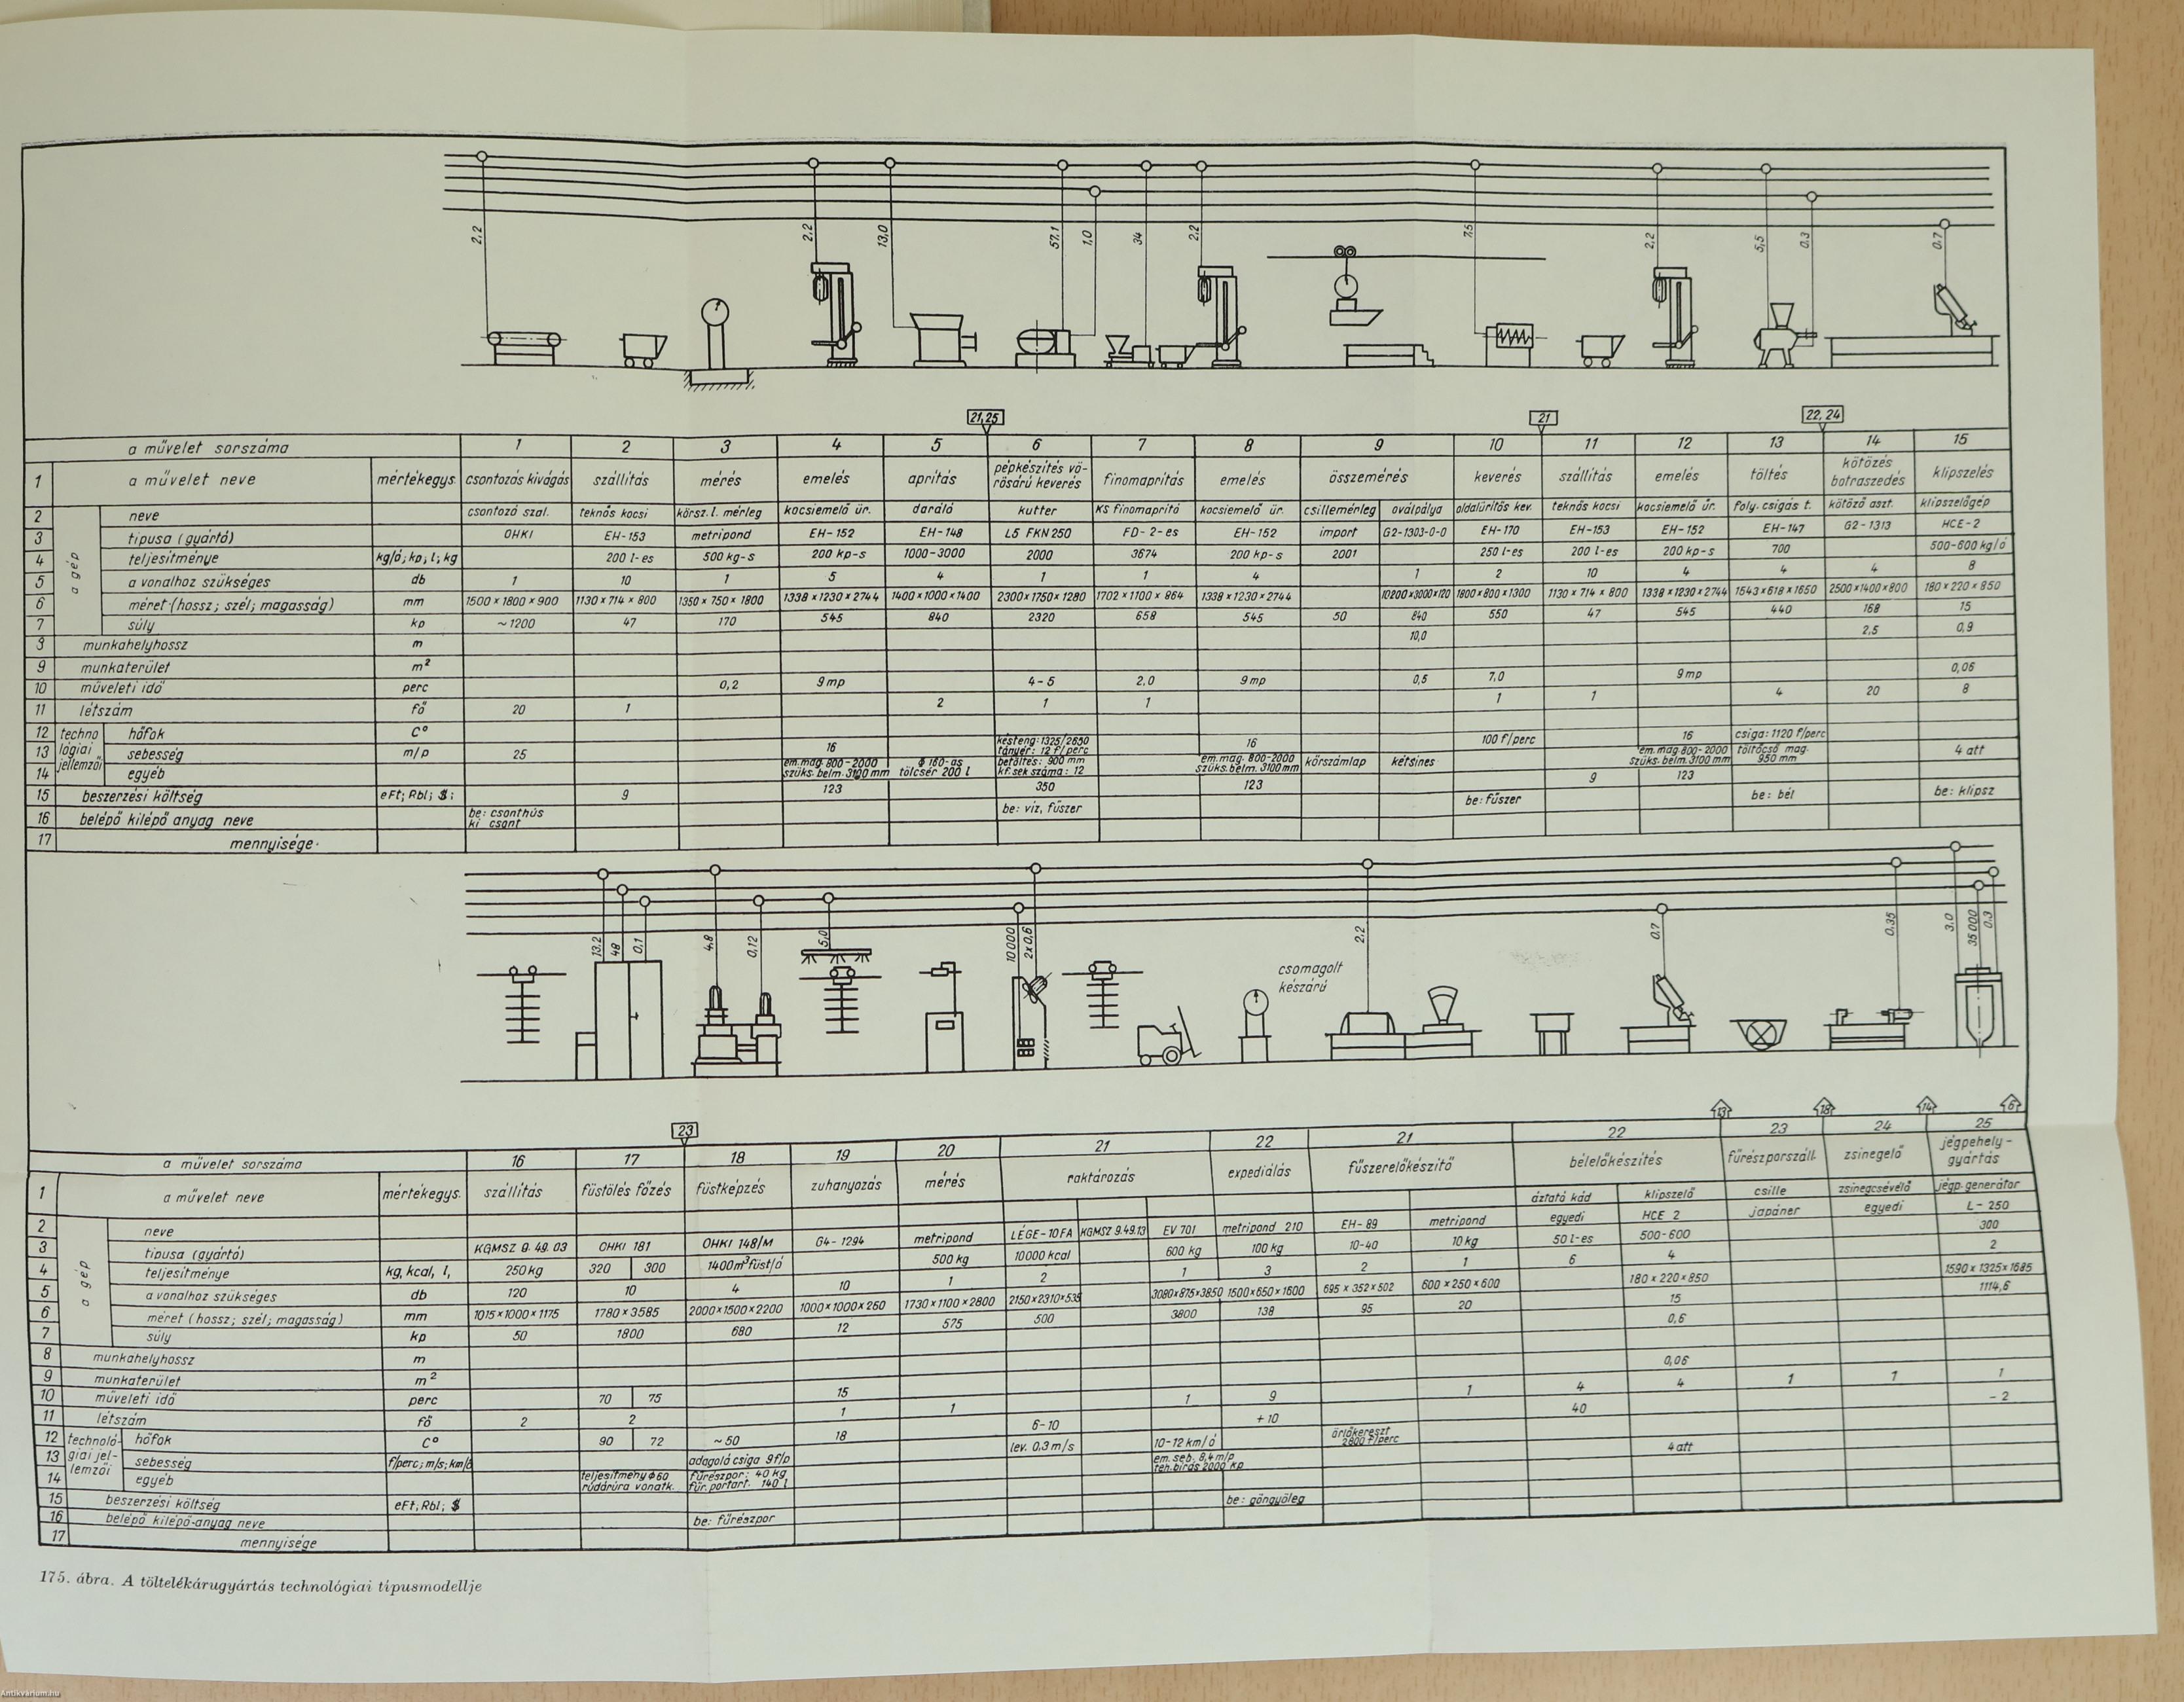 2,2 2,2 13,0 57,1 1,0 34 2,2 7,5 2,2 5,5 0,3 0,7
21,25 21 22, 24
a művelet sorszáma 1 2 3 4 5 6 7 8 9 10 11 12 13 14 15
1 a művelet neve mértékegys. csontozás kivágás szállítás mérés emelés aprítás pépkészítés vö-rösárú keverés finomaprítás emelés összemérés keverés szállítás emelés töltés kötözés botraszedés klipszelés
a gép
2 neve csontozó szal. teknős kocsi körsz. l. mérleg kocsiemelő ür. daráló kutter KS finomaprító kocsiemelő ür. csillemérleg oválpálya oldalürítős kev. teknős kocsi kocsiemelő űr. foly. csigás t. kötöző aszt. klipszelőgép
3 típusa (gyártó) OHKI EH-153 metripond EH-152 EH-148 L5 FKN 250 FD-2-es EH-152 import G2-1303-0-0 EH-170 EH-153 EH-152 EH-147 G2-1313 HCE-2
4 teljesítménye kg/ó; kp; l; kg 200 l-es 500 kg-s 200 kp-s 1000-3000 2000 3674 200 kp-s 2001 250 l-es 200 l-es 200 kp-s 700 500-600 kg/ó
5 a vonalhoz szükséges db 1 10 1 5 4 1 1 4 1 2 10 4 4 4 8
6 méret (hossz; szél; magasság) mm 1500×1800×900 1130×714×800 1350×750×1800 1338×1230×2744 1400×1000×1400 2300×1750×1280 1702×1100×864 1338×1230×2744 10200×3000×120 1800×800×1300 1130×714×800 1338×1230×2744 1543×618×1650 2500×1400×800 180×220×850
7 súly kp ~1200 47 170 545 840 2320 658 545 50 840 550 47 545 440 168 15
8 munkahelyhossz m 10,0 2,5 0,9
9 munkaterület m² 0,06
10 műveleti idő perc 0,2 9mp 4-5 2,0 9mp 0,5 7,0 9mp
11 létszám fő 20 1 2 1 1 1 1 4 20 8
technológiai jellemzői
12 hőfok C°
13 sebesség m/p 25 16 késteng: 1325/2650 tányér: 12 f/perc 16 100 f/perc 16 csiga: 1120 f/perc 4 att
14 egyéb em. mag. 800-2000 szüks. belm. 3100 mm ϕ 160-as tölcsér 200 l betöltés: 900 mm kf. sek száma: 12 em. mag. 800-2000 szüks. belm. 3100mm körszámlap kétsines em. mag. 800-2000 szüks. belm. 3100 mm töltőcső mag. 950 mm
15 beszerzési költség eFt; Rbl; $; 9 123 350 123 9 123
16 belépő kilépő anyag neve be: csonthús ki csont be: víz, fűszer be: fűszer be: bél be: klipsz
17 mennyisége
13,2 48 0,1 4,8 0,12 5,0 10 000 2x0,6 2,2 0,7 0,35 3,0 35 000 0,3
csomagolt
készárú
23 13 18 14 6
a művelet sorszáma 16 17 18 19 20 21 22 21 22 23 24 25
1 a művelet neve mértékegys. szállítás füstölés főzés füstképzés zuhanyozás mérés raktározás expediálás fűszerelőkészítő bélelőkészítés fűrészporszáll. zsinegelő jégpehely-gyártás
a gép
2 neve áztató kád klipszelő csille zsinegcsévélő jégp. generátor
3 típusa (gyártó) KGMSZ 9. 49. 03 OHKI 181 OHKI 148/M G4-1294 metripond LÉGE-10FA KGMSZ 9.49.13 EV 701 metripond 210 EH-89 metripond egyedi HCE 2 japáner egyedi L-250
4 teljesítménye kg, kcal, l, 250kg 320 300 1400m³füst/ó 500 kg 10000 kcal 600 kg 100 kg 10-40 10kg 50 l-es 500-600 300
5 a vonalhoz szükséges db 120 10 4 10 1 2 1 3 2 1 6 4 2
6 méret (hossz; szél; magasság) mm 1015×1000×1175 1780×3585 2000×1500×2200 1000×1000×260 1730×1100×2800 2150×2310×535 3080×875×3850 1500×650×1600 695×352×502 600×250×600 180×220×850 1590×1325×1685
7 súly kp 50 1800 680 12 575 500 3800 138 95 20 15 1114,6
8 munkahelyhossz m 0,6
9 munkaterület m²
10 műveleti idő perc 70 75 15 0,06
11 létszám fő 2 2 1 1 1 9 1 4 4 1 1 1
technológiai jellemzői
12 hőfok C° 90 72 ~50 18 6-10 +10 40 -2
13 sebesség f/perc; m/s; km/ó adagoló csiga 9f/p lev. 0,3 m/s 10-12 km/ó őrlőkereszt 2800 f/perc
14 egyéb teljesítmény ϕ60 rúdárúra vonatk. fűrészpor: 40 kg für. portart. 140 l em. seb. 8,4 m/p teh. bírás 2000 kp 4att
15 beszerzési költség eFt, Rbl; $
16 belépő kilépő-anyag neve be: fűrészpor be: göngyöleg
17 mennyisége
175. ábra. A töltelékárugyártás technológiai típusmodellje
Antikvárium.hu